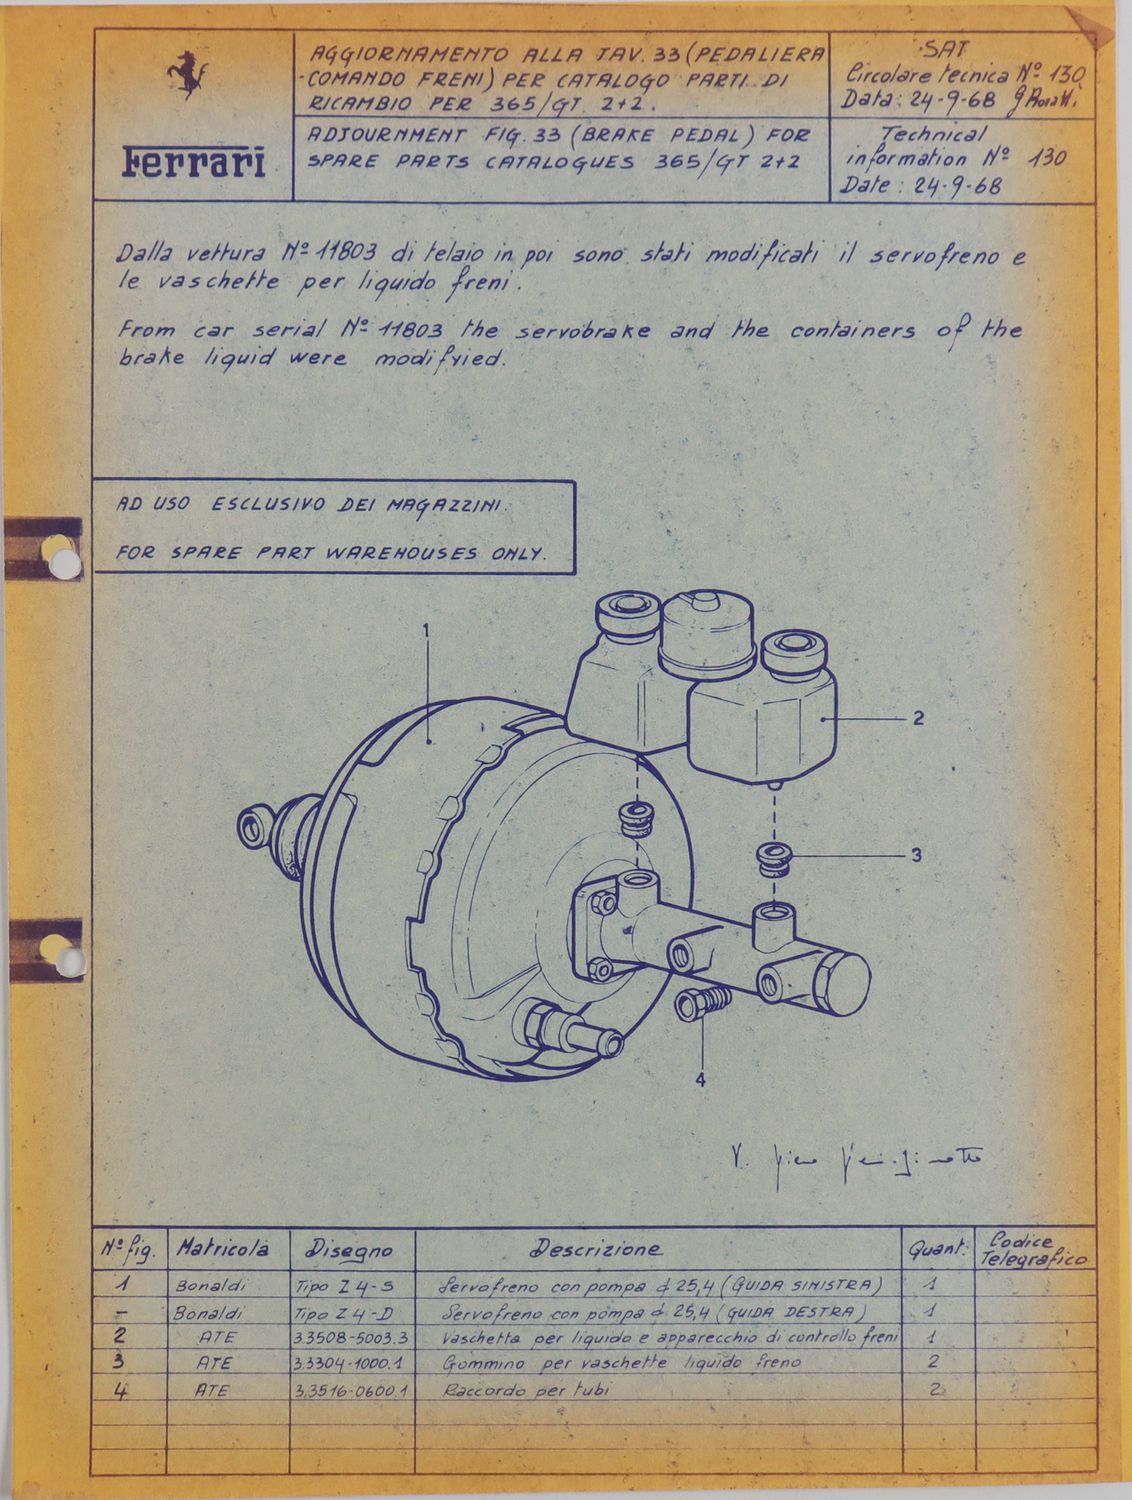 Ferrari
AGGIORNAMENTO ALLA TAV. 33 (PEDALIERA
-COMANDO FRENI) PER CATALOGO PARTI DI
RICAMBIO PER 365/GT. 2+2.
ADJOURNMENT FIG. 33 (BRAKE PEDAL) FOR
SPARE PARTS CATALOGUES 365/GT 2+2
SAT
Circolare tecnica Nº 130
Data: 24-9-68
Technical
information Nº 130
Date: 24-9-68
Dalla vettura Nº 11803 di telaio in poi sono stati modificati il servofreno e
le vaschette per liquido freni.
From car serial Nº 11803 the servobrake and the containers of the
brake liquid were modifyied.
AD USO ESCLUSIVO DEI MAGAZZINI.
FOR SPARE PART WAREHOUSES ONLY.
1
2
3
4
Nº fig. Matricola Disegno Descrizione Quant. Codice Telegrafico
1 Bonaldi Tipo Z 4-S Servofreno con pompa ɸ 25,4 (GUIDA SINISTRA) 1
- Bonaldi Tipo Z 4-D Servofreno con pompa ɸ 25,4 (GUIDA DESTRA) 1
2 ATE 3.3508-5003.3 Vaschetta per liquido e apparecchio di controllo freni 1
3 ATE 3.3304-1000.1 Gommino per vaschette liquido freno 2
4 ATE 3.3516-0600.1 Raccordo per tubi 2